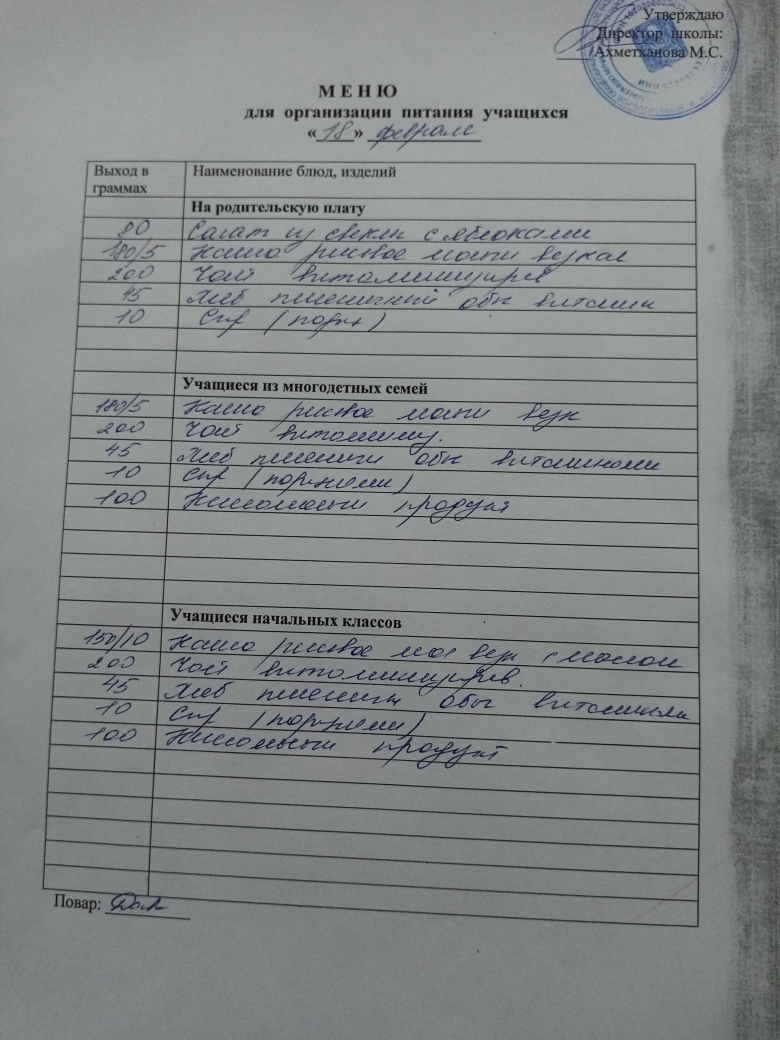 Утверждаю
Директор школы:
Ахметханова М.С.
М Е Н Ю
для организации питания учащихся
« 18 » февраля
Выход в граммах Наименование блюд, изделий
На родительскую плату
80 Салат из свеклы с яблоками
180/5 Каша рисовая молочн вязкая
200 Чай витаминизиров
45 Хлеб пшеничный обог витамин
10 Сыр (порц)
Учащиеся из многодетных семей
180/5 Каша рисовая молочн вязк
200 Чай витаминиз.
45 Хлеб пшеничн обог витаминами
10 Сыр (порциями)
100 Кисломолочн продукт
Учащиеся начальных классов
150/10 Каша рисовая мол вязк с маслом
200 Чай витаминизиров.
45 Хлеб пшеничн обог витаминами
10 Сыр (порциями)
100 Кисломолочн продукт
Повар: